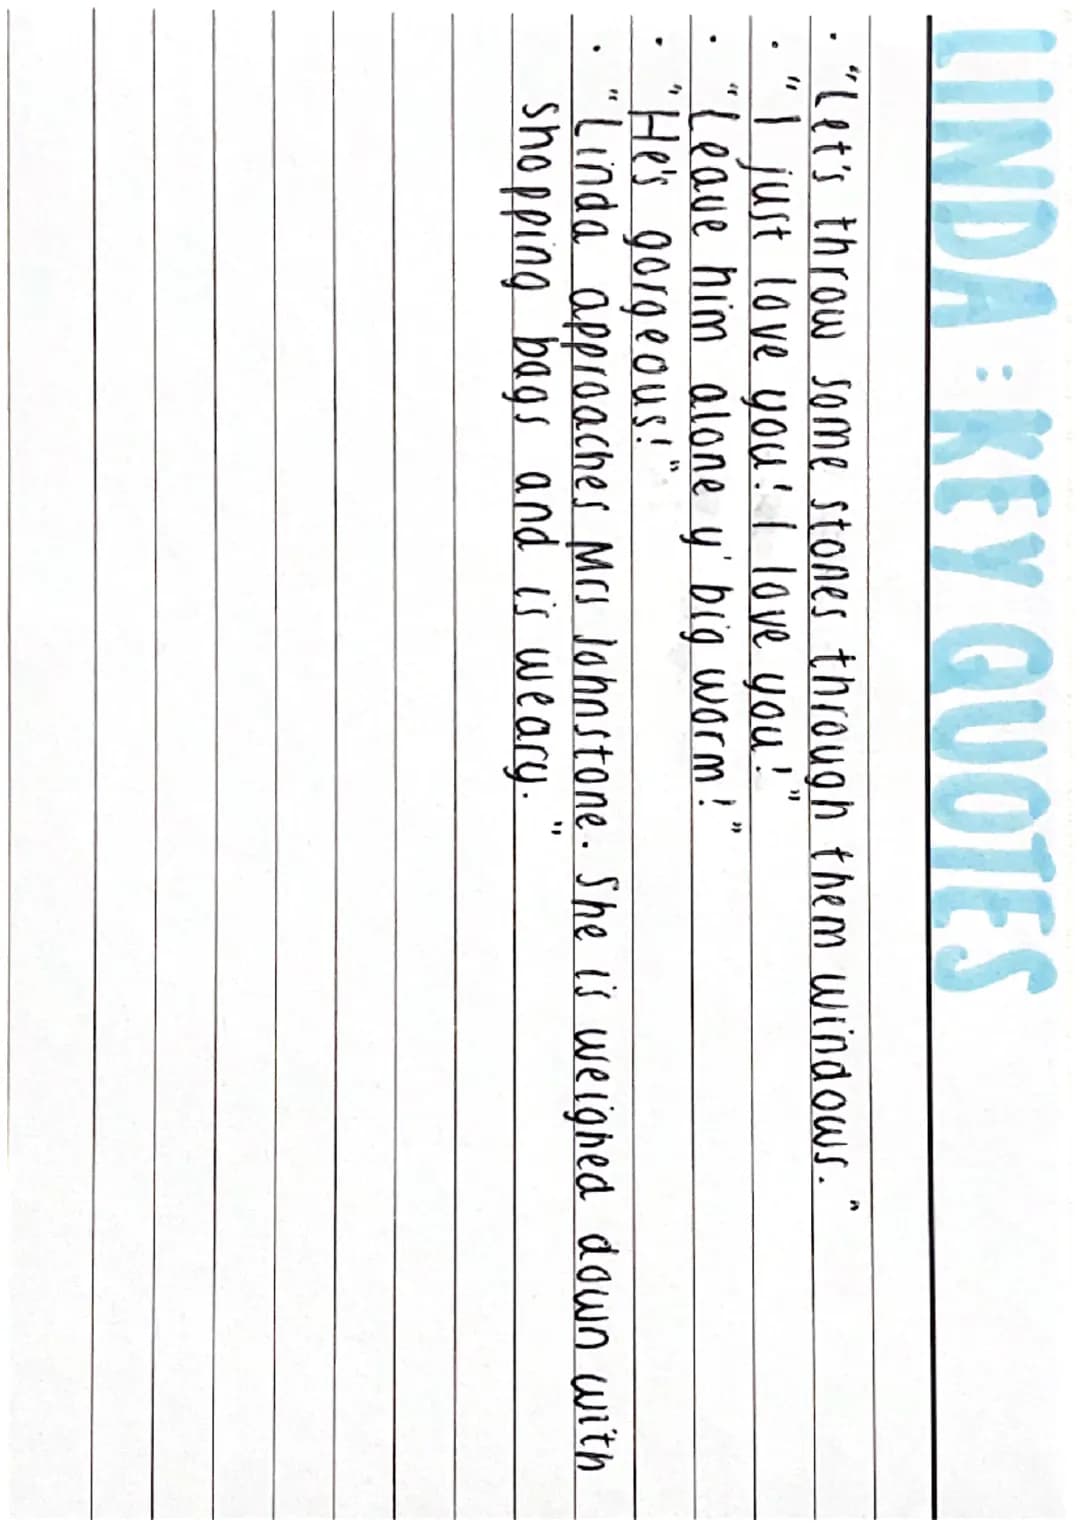 LINDA : KEY QUOTES
• "Let's throw some stones through them windows."
• "I just love you! I love you!"
• "Leave him alone y' big worm!"
• "He's gorgeous!"
• "Linda approaches Mrs Johnstone. She is weighed down with
shopping bags and is weary."